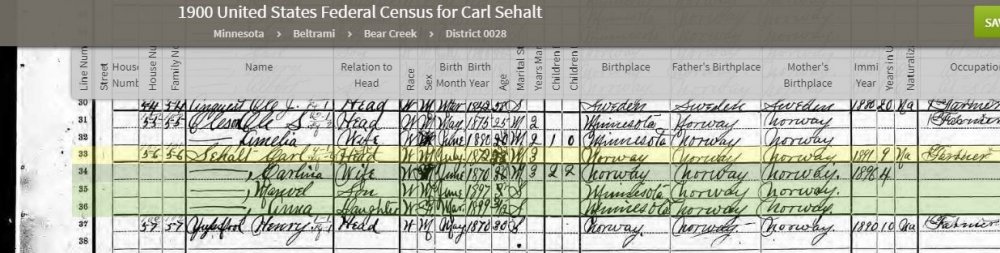 1900 United States Federal Census for Carl Sehalt
Minnesota > Beltrami > Bear Creek > District 0028
SAV
Line Num Street House Numb House Nu Family No Name Relation to Head Race Sex Birth Month Birth Year Age Marital St Years Mar Children Children Birthplace Father's Birthplace Mother's Birthplace Immi Years in U Naturaliz Occupation
30 54 54 Ole Head W M Mar 1842 58 Sweden Sweden Sweden 1880 20 Na Farmer
31 55 55 Oleson Ole S Head W M May 1875 25 M 2 Minnesota Norway Norway Farmer
32 Wife W June M 2 1 0 Minnesota Norway Norway
33 56 56 Sehalt Carl Head W M July 1872 M 3 Norway Norway Norway 1891 9 Na Farmer
34 Wife W June 1870 M 3 2 2 Norway Norway Norway 1896 4
35 Son W M June 1897 S Minnesota Norway Norway
36 Anna Daughter W Mar 1899 S Minnesota Norway Norway
37 57 57 Henry Head W M May 1870 30 S Norway Norway Norway 1890 10 Na Farmer
38